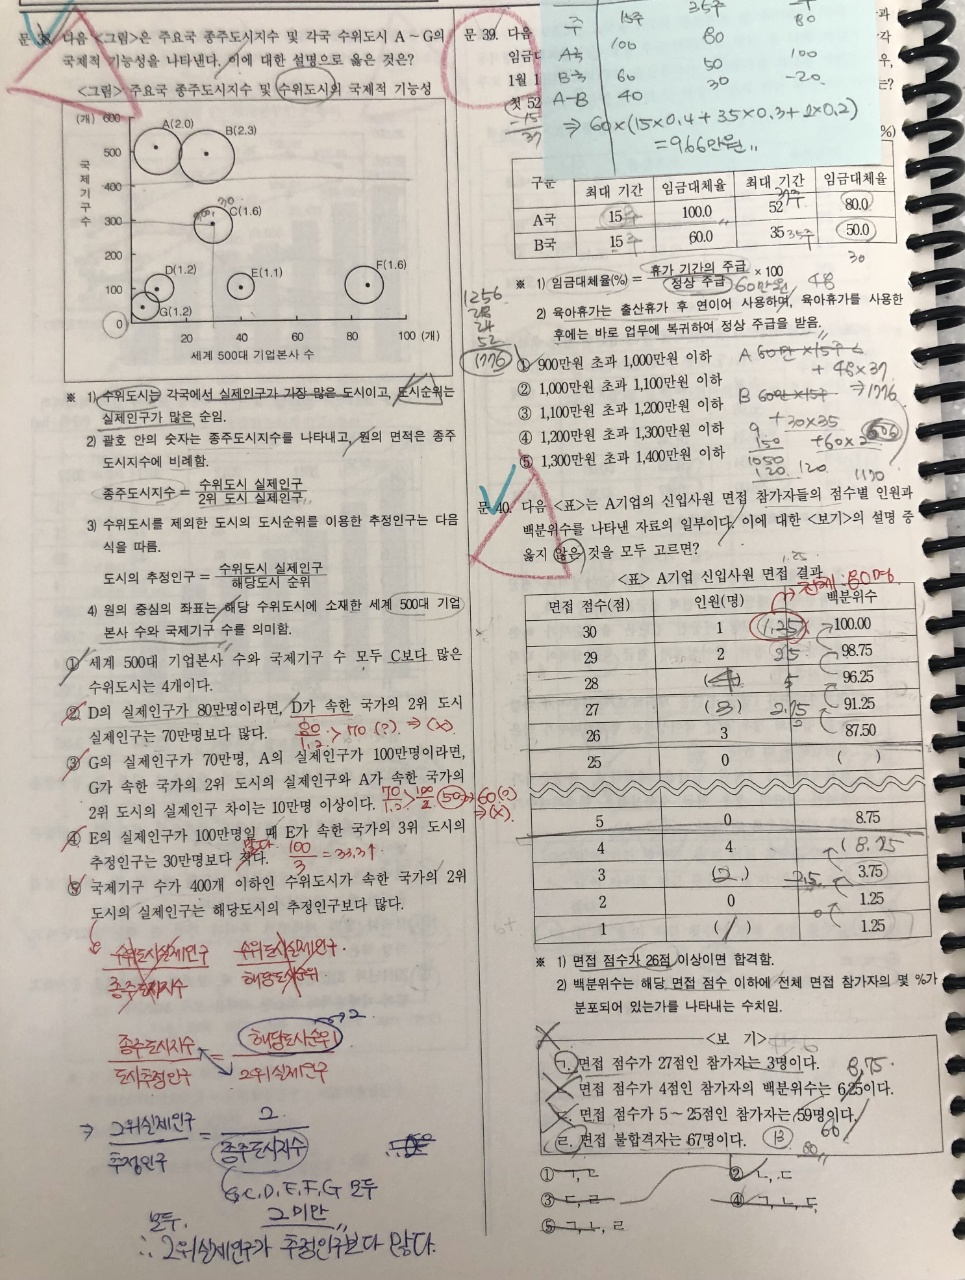 문 38. 다음 <그림>은 주요국 종주도시지수 및 각국 수위도시 A ~ G의
국제적 기능성을 나타낸다. 이에 대한 설명으로 옳은 것은?
<그림> 주요국 종주도시지수 및 수위도시의 국제적 기능성
(개) 600
500
400
300
200
100
0
국제기구수
A(2.0)
B(2.3)
C(1.6)
D(1.2)
E(1.1)
F(1.6)
G(1.2)
20 40 60 80 100 (개)
세계 500대 기업본사 수
※ 1) 수위도시는 각국에서 실제인구가 가장 많은 도시이고, 도시순위는
실제인구가 많은 순임.
2) 괄호 안의 숫자는 종주도시지수를 나타내고, 원의 면적은 종주
도시지수에 비례함.
종주도시지수 = 수위도시 실제인구 / 2위 도시 실제인구
3) 수위도시를 제외한 도시의 도시순위를 이용한 추정인구는 다음
식을 따름.
도시의 추정인구 = 수위도시 실제인구 / 해당도시 순위
4) 원의 중심의 좌표는 해당 수위도시에 소재한 세계 500대 기업
본사 수와 국제기구 수를 의미함.
① 세계 500대 기업본사 수와 국제기구 수 모두 C보다 많은
수위도시는 4개이다.
② D의 실제인구가 80만명이라면, D가 속한 국가의 2위 도시
실제인구는 70만명보다 많다.
80/1.2 > 70 (?) ⇒ (x)
③ G의 실제인구가 70만명, A의 실제인구가 100만명이라면,
G가 속한 국가의 2위 도시의 실제인구와 A가 속한 국가의
2위 도시의 실제인구 차이는 10만명 이상이다.
④ E의 실제인구가 100만명일 때 E가 속한 국가의 3위 도시의
추정인구는 30만명보다 적다.
100/3 = 33.3↑
⑤ 국제기구 수가 400개 이하인 수위도시가 속한 국가의 2위
도시의 실제인구는 해당도시의 추정인구보다 많다.
수위도시실제인구 / 종주도시지수
수위도시실제인구 / 해당도시순위
종주도시지수 / 도시추정인구
해당도시순위 / 2위실제인구
→ 2
⇒ 2위실제인구 / 추정인구 = 2 / 종주도시지수
C, D, E, F, G 모두
2 미만
모두.
∴ 2위실제인구가 추정인구보다 많다.
문 39. 다음
임금대
1월 1
첫 52
-15
37
주 15주 35주 80
A국 100 80
B국 60 50 100
A-B 40 30 -20
⇒ 60×(15×0.4+35×0.3+2×0.2)
=966만원
구분 최대 기간 임금대체율 최대 기간 임금대체율
A국 15 100.0 52 80.0
B국 15 60.0 35 50.0
※ 1) 임금대체율(%) = 휴가 기간의 주급 / 정상 주급 × 100
60만원 48
30
2) 육아휴가는 출산휴가 후 연이어 사용하며, 육아휴가를 사용한
후에는 바로 업무에 복귀하여 정상 주급을 받음.
① 900만원 초과 1,000만원 이하
② 1,000만원 초과 1,100만원 이하
③ 1,100만원 초과 1,200만원 이하
④ 1,200만원 초과 1,300만원 이하
⑤ 1,300만원 초과 1,400만원 이하
A 60만×15주
+ 48×37
⇒ 1776
B 60만×15주
+30×35
+60×2
1776
문 40. 다음 <표>는 A기업의 신입사원 면접 참가자들의 점수별 인원과
백분위수를 나타낸 자료의 일부이다. 이에 대한 <보기>의 설명 중
옳지 않은 것을 모두 고르면?
<표> A기업 신입사원 면접 결과
전체:80명.
면접 점수(점) 인원(명) 백분위수
30 1 1.25 100.00
29 2 2.5 98.75
28 (4) 5 96.25
27 (3) 3.75 91.25
26 3 87.50
25 0 ( )
5 0 8.75
4 4 (8.75
3 (2) 2.5 3.75
2 0 0 1.25
1 (1) 1.25
※ 1) 면접 점수가 26점 이상이면 합격함.
2) 백분위수는 해당 면접 점수 이하에 전체 면접 참가자의 몇 %가
분포되어 있는가를 나타내는 수치임.
<보 기>
ㄱ. 면접 점수가 27점인 참가자는 3명이다.
ㄴ. 면접 점수가 4점인 참가자의 백분위수는 6.25이다.
8.75
ㄷ. 면접 점수가 5 ~ 25점인 참가자는 59명이다.
ㄹ. 면접 불합격자는 67명이다.
13
① ㄱ, ㄴ
② ㄴ, ㄷ
③ ㄷ, ㄹ
④ ㄱ, ㄴ, ㄷ
⑤ ㄱ, ㄴ, ㄹ